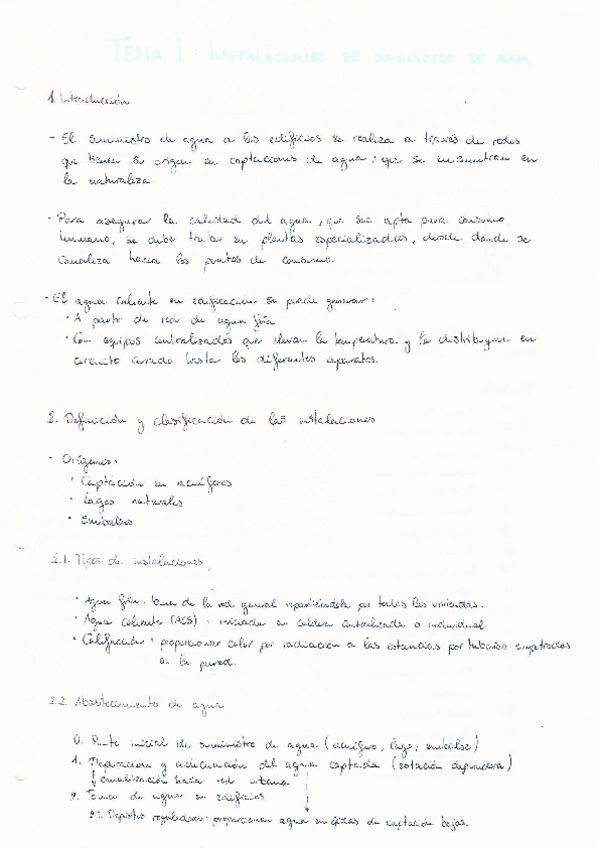 TEMA 1: INSTALACIONES DE SUMINISTRO DE AGUA
1. Introducción
- El suministro de agua a los edificios se realiza a través de redes
que tienen su origen en captaciones de agua, que se encuentran en
la naturaleza.
- Para asegurar la calidad del agua, que sea apta para consumo
humano, se debe tratar en plantas especializadas, desde donde se
canaliza hacia los puntos de consumo.
- El agua caliente en edificación se puede generar:
· A partir de red de agua fría
· Con equipos centralizados que elevan la temperatura y la distribuyen en
circuito cerrado hasta los diferentes aparatos.
2. Definición y clasificación de las instalaciones
- Orígenes:
· Captación en acuíferos
· Lagos naturales
· Embalses
2.1. Tipos de instalaciones
· Agua fría: toma de la red general repartiéndola por todas las viviendas.
· Agua caliente (ACS): iniciada en caldera centralizada o individual
· Calificación: proporcionar calor por radiación a las estancias por tuberías empotradas
en la pared.
2.2. Abastecimiento de agua
0. Punto inicial de suministro de agua (acuífero, lago, embalse)
1. Depuración y adecuación del agua captada (estación depuradora)
↓ canalización hacia red urbana.
2. Toma de agua en edificios
2.1. Depósitos reguladores: proporcionan agua en épocas de captación bajas.